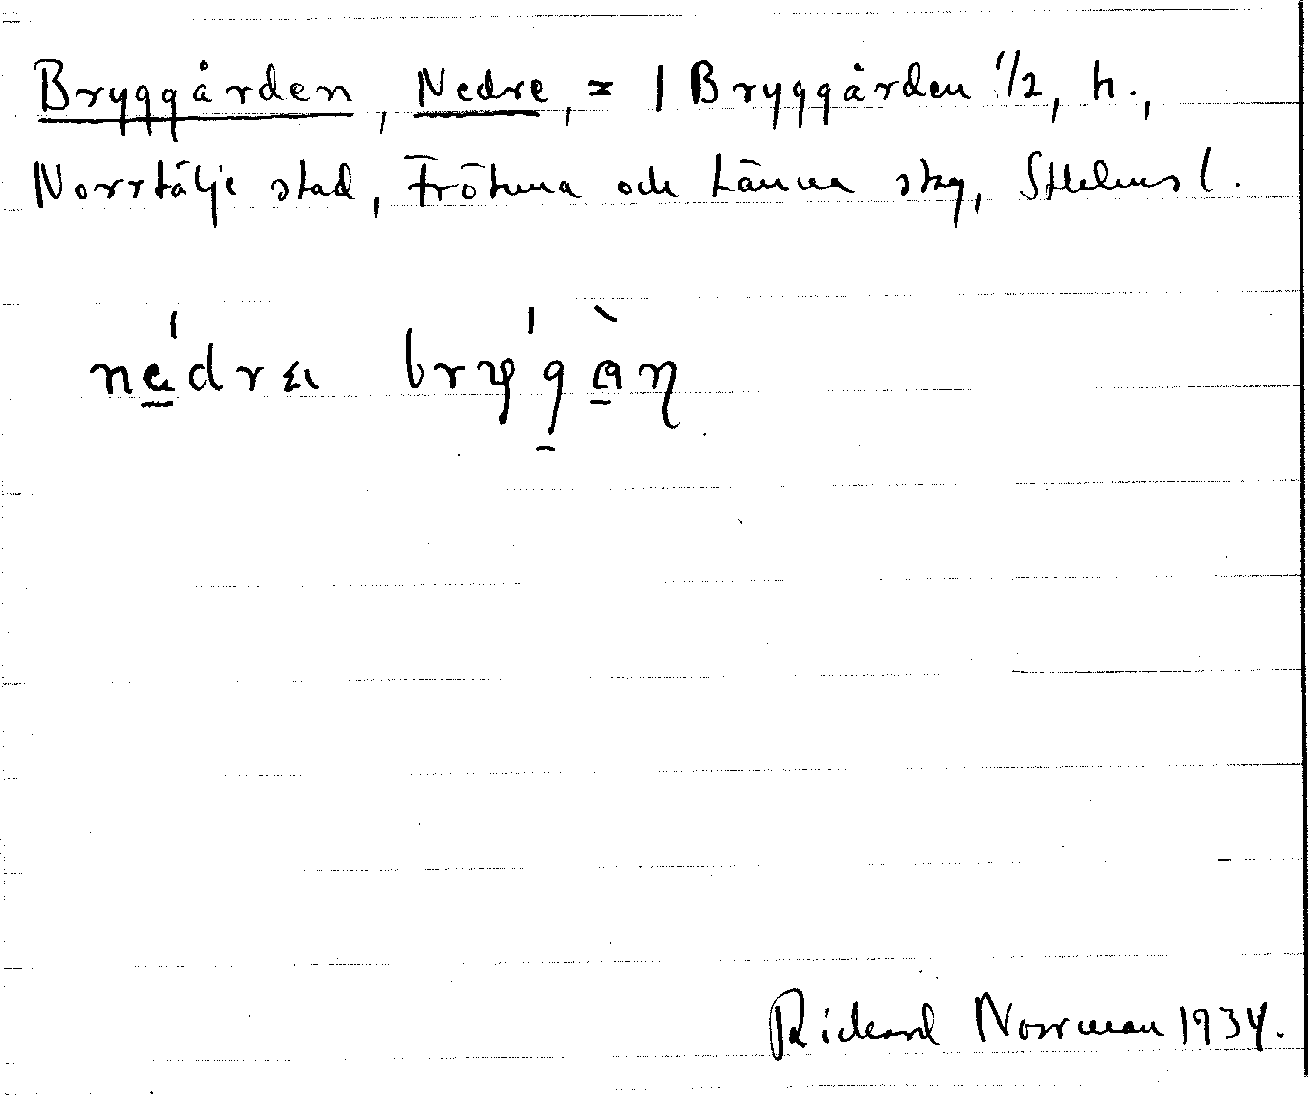 Bryggården, Nedre, = 1 Bryggården 1/2, h.,
Norrtälje stad, Frötuna och Länna skg, Sthlms l.
né̱dræ bry´gà̱ꞃ
Rickard Norrman 1934.